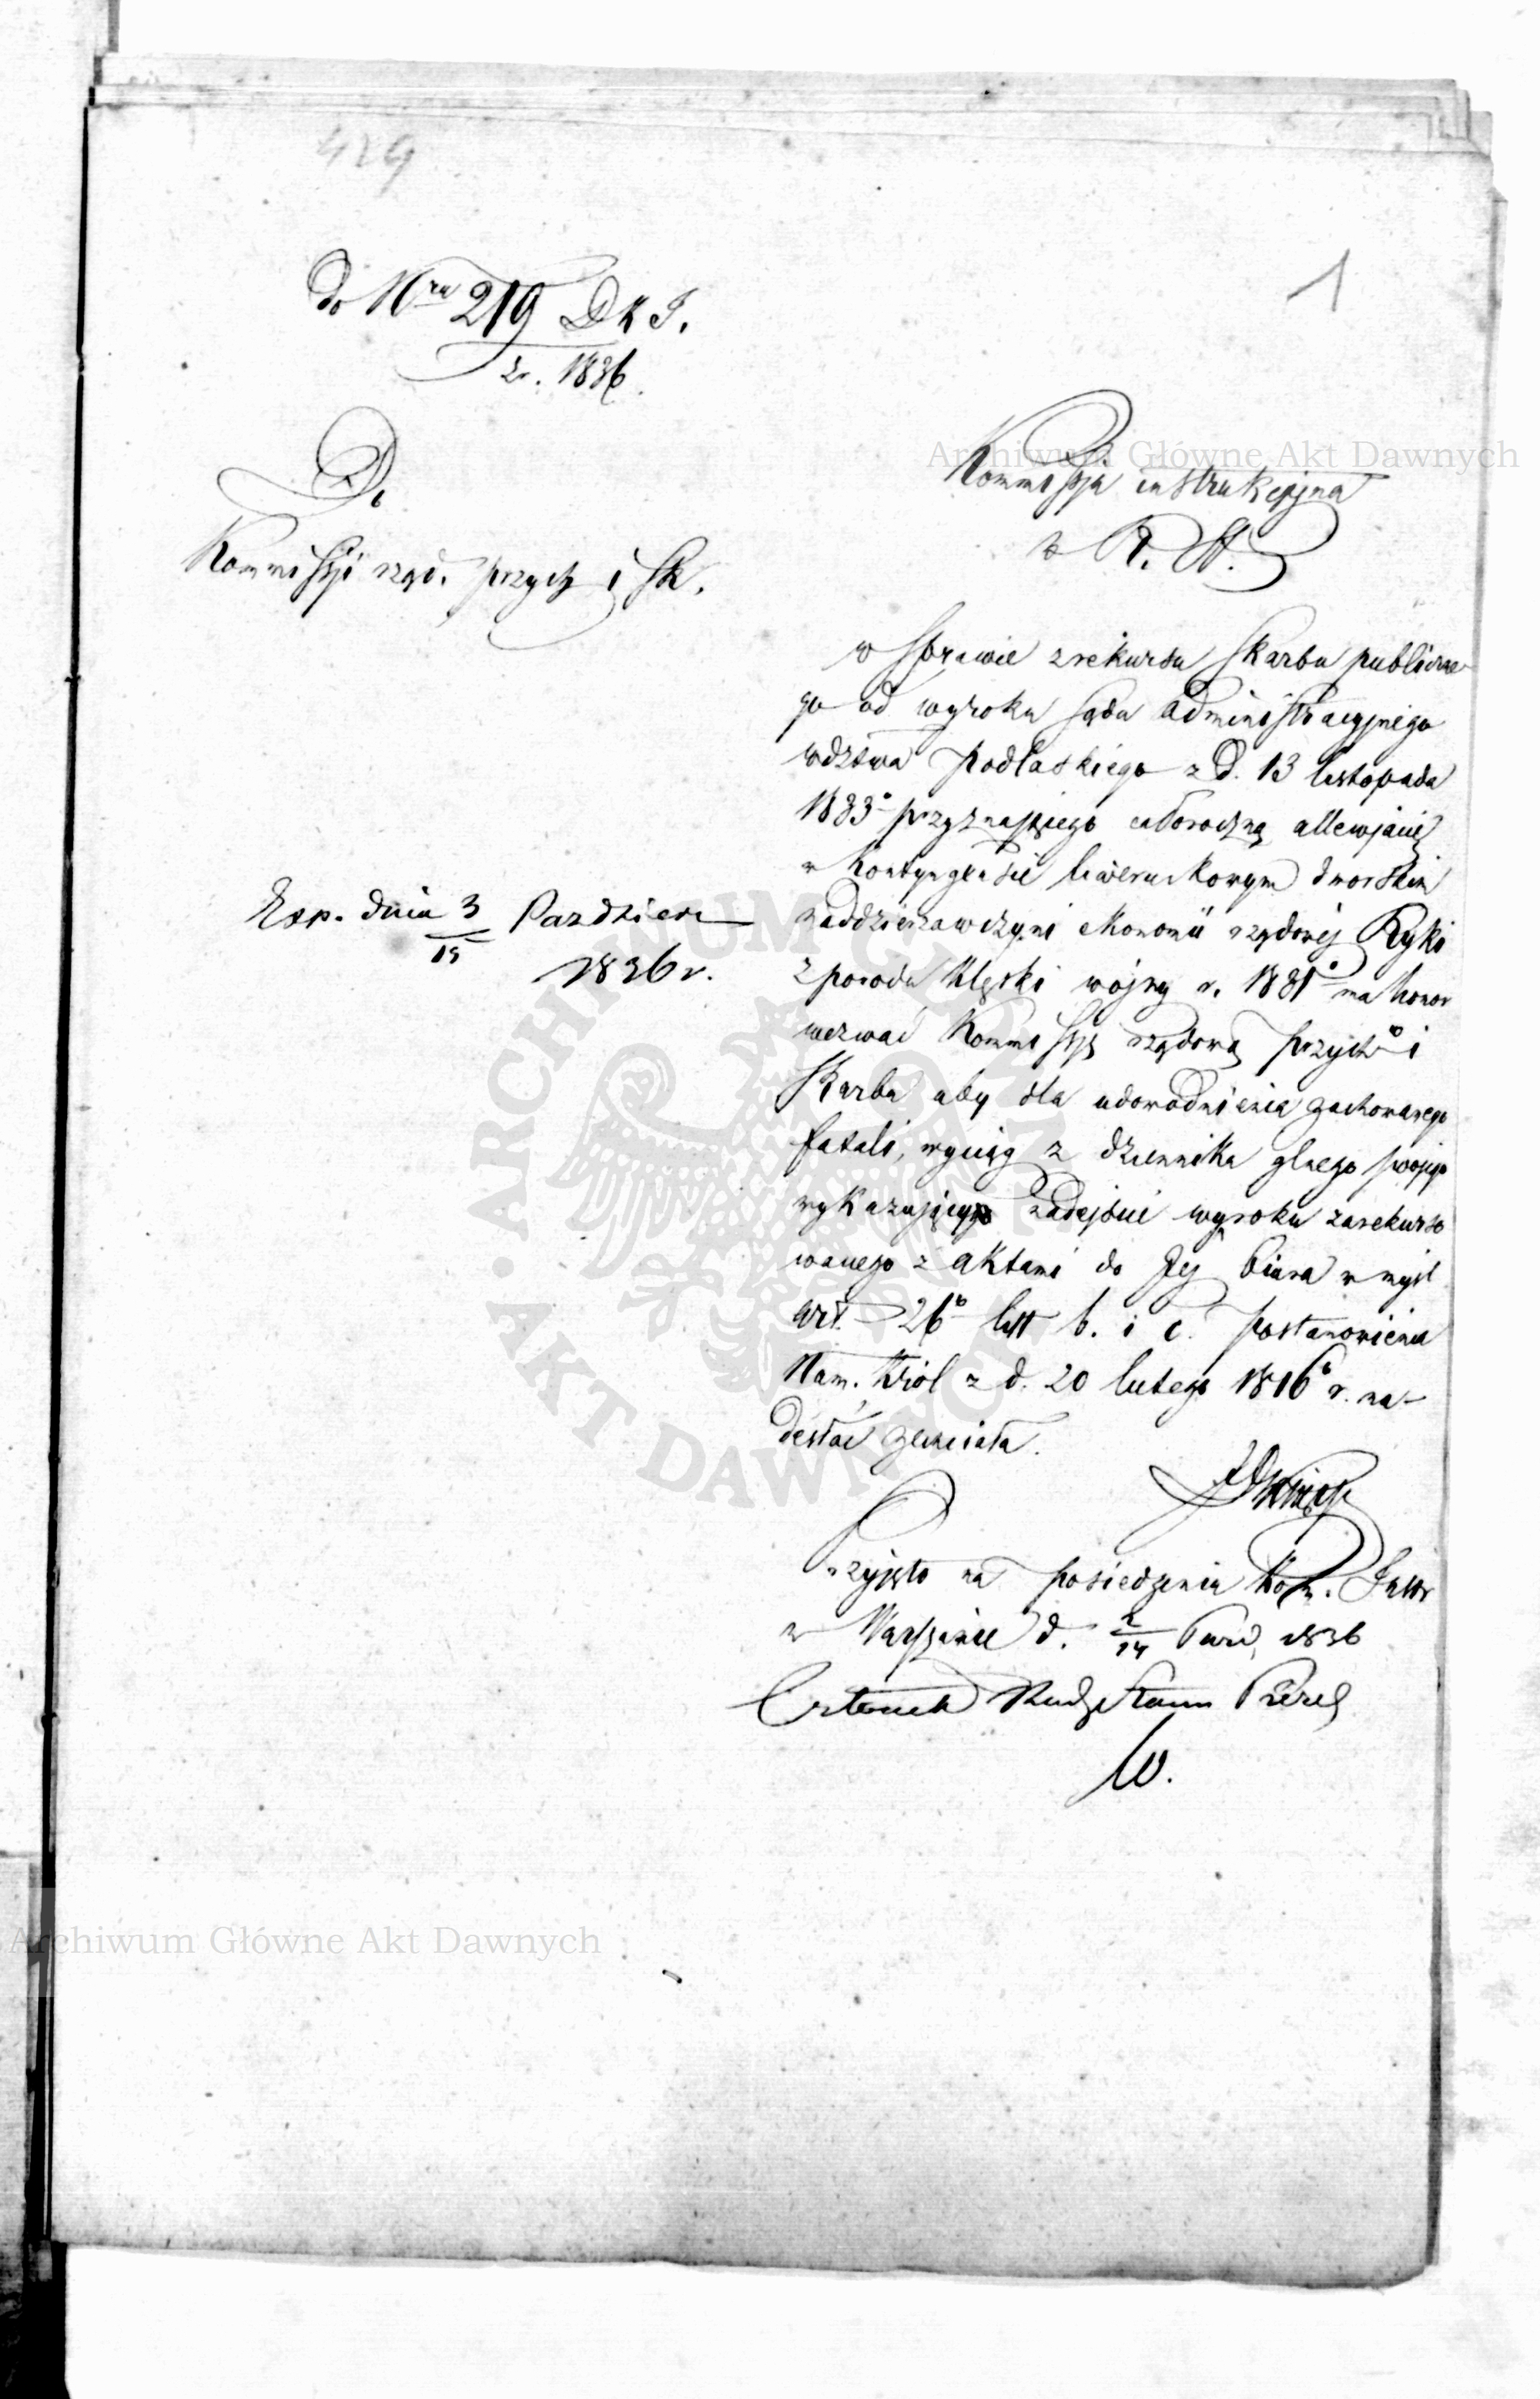 429
1
do Nru 219 D K I.
z r. 1836.
Do
Kommissyi rząd. przych i Sk.
Exp. dnia 3/15 Pazdziern
1836 r.
Kommissya instrukcyjna
w R. St.
w sprawie z rekursu Skarbu publiczne
go od wyroku sądu administracyjnego
wdztwa Podlaskiego z d. 13 listopada
1833o przyznającego całoroczną allewjacyę
w kontyngensie liwerunkowym dworskim
naddzierzawczyni ekonomii rządowej Ryki
z powodu klęski wojny r. 1831o ma honor
wezwać Kommissyę rządową przychw i
Skarbu aby dla udowodnienia zachowanego
fatali, wyciąg z dziennika glnego swojego
wykazujący nadejście wyroku zarekurso
wanego z aktami do Jej biura w myśl
art. 26o litt b. i c. postanowienia
Nam. Król z d. 20 lutego 1816o r. na-
desłać zechciała.
Przyjęto na posiedzeniu Kom. Instr
w Warszawie d. 2/14 Paźd. 1836
Członek Radzca Stanu Prezes
W.
Archiwum Główne Akt Dawnych
Archiwum Główne Akt Dawnych
ARCHIWUM GŁÓWNE
AKT DAWNYCH